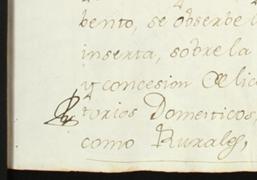 bento, se obserbe l
inserta, sobre la
y concesion de lic
torios Domesticos,
como Rurales,